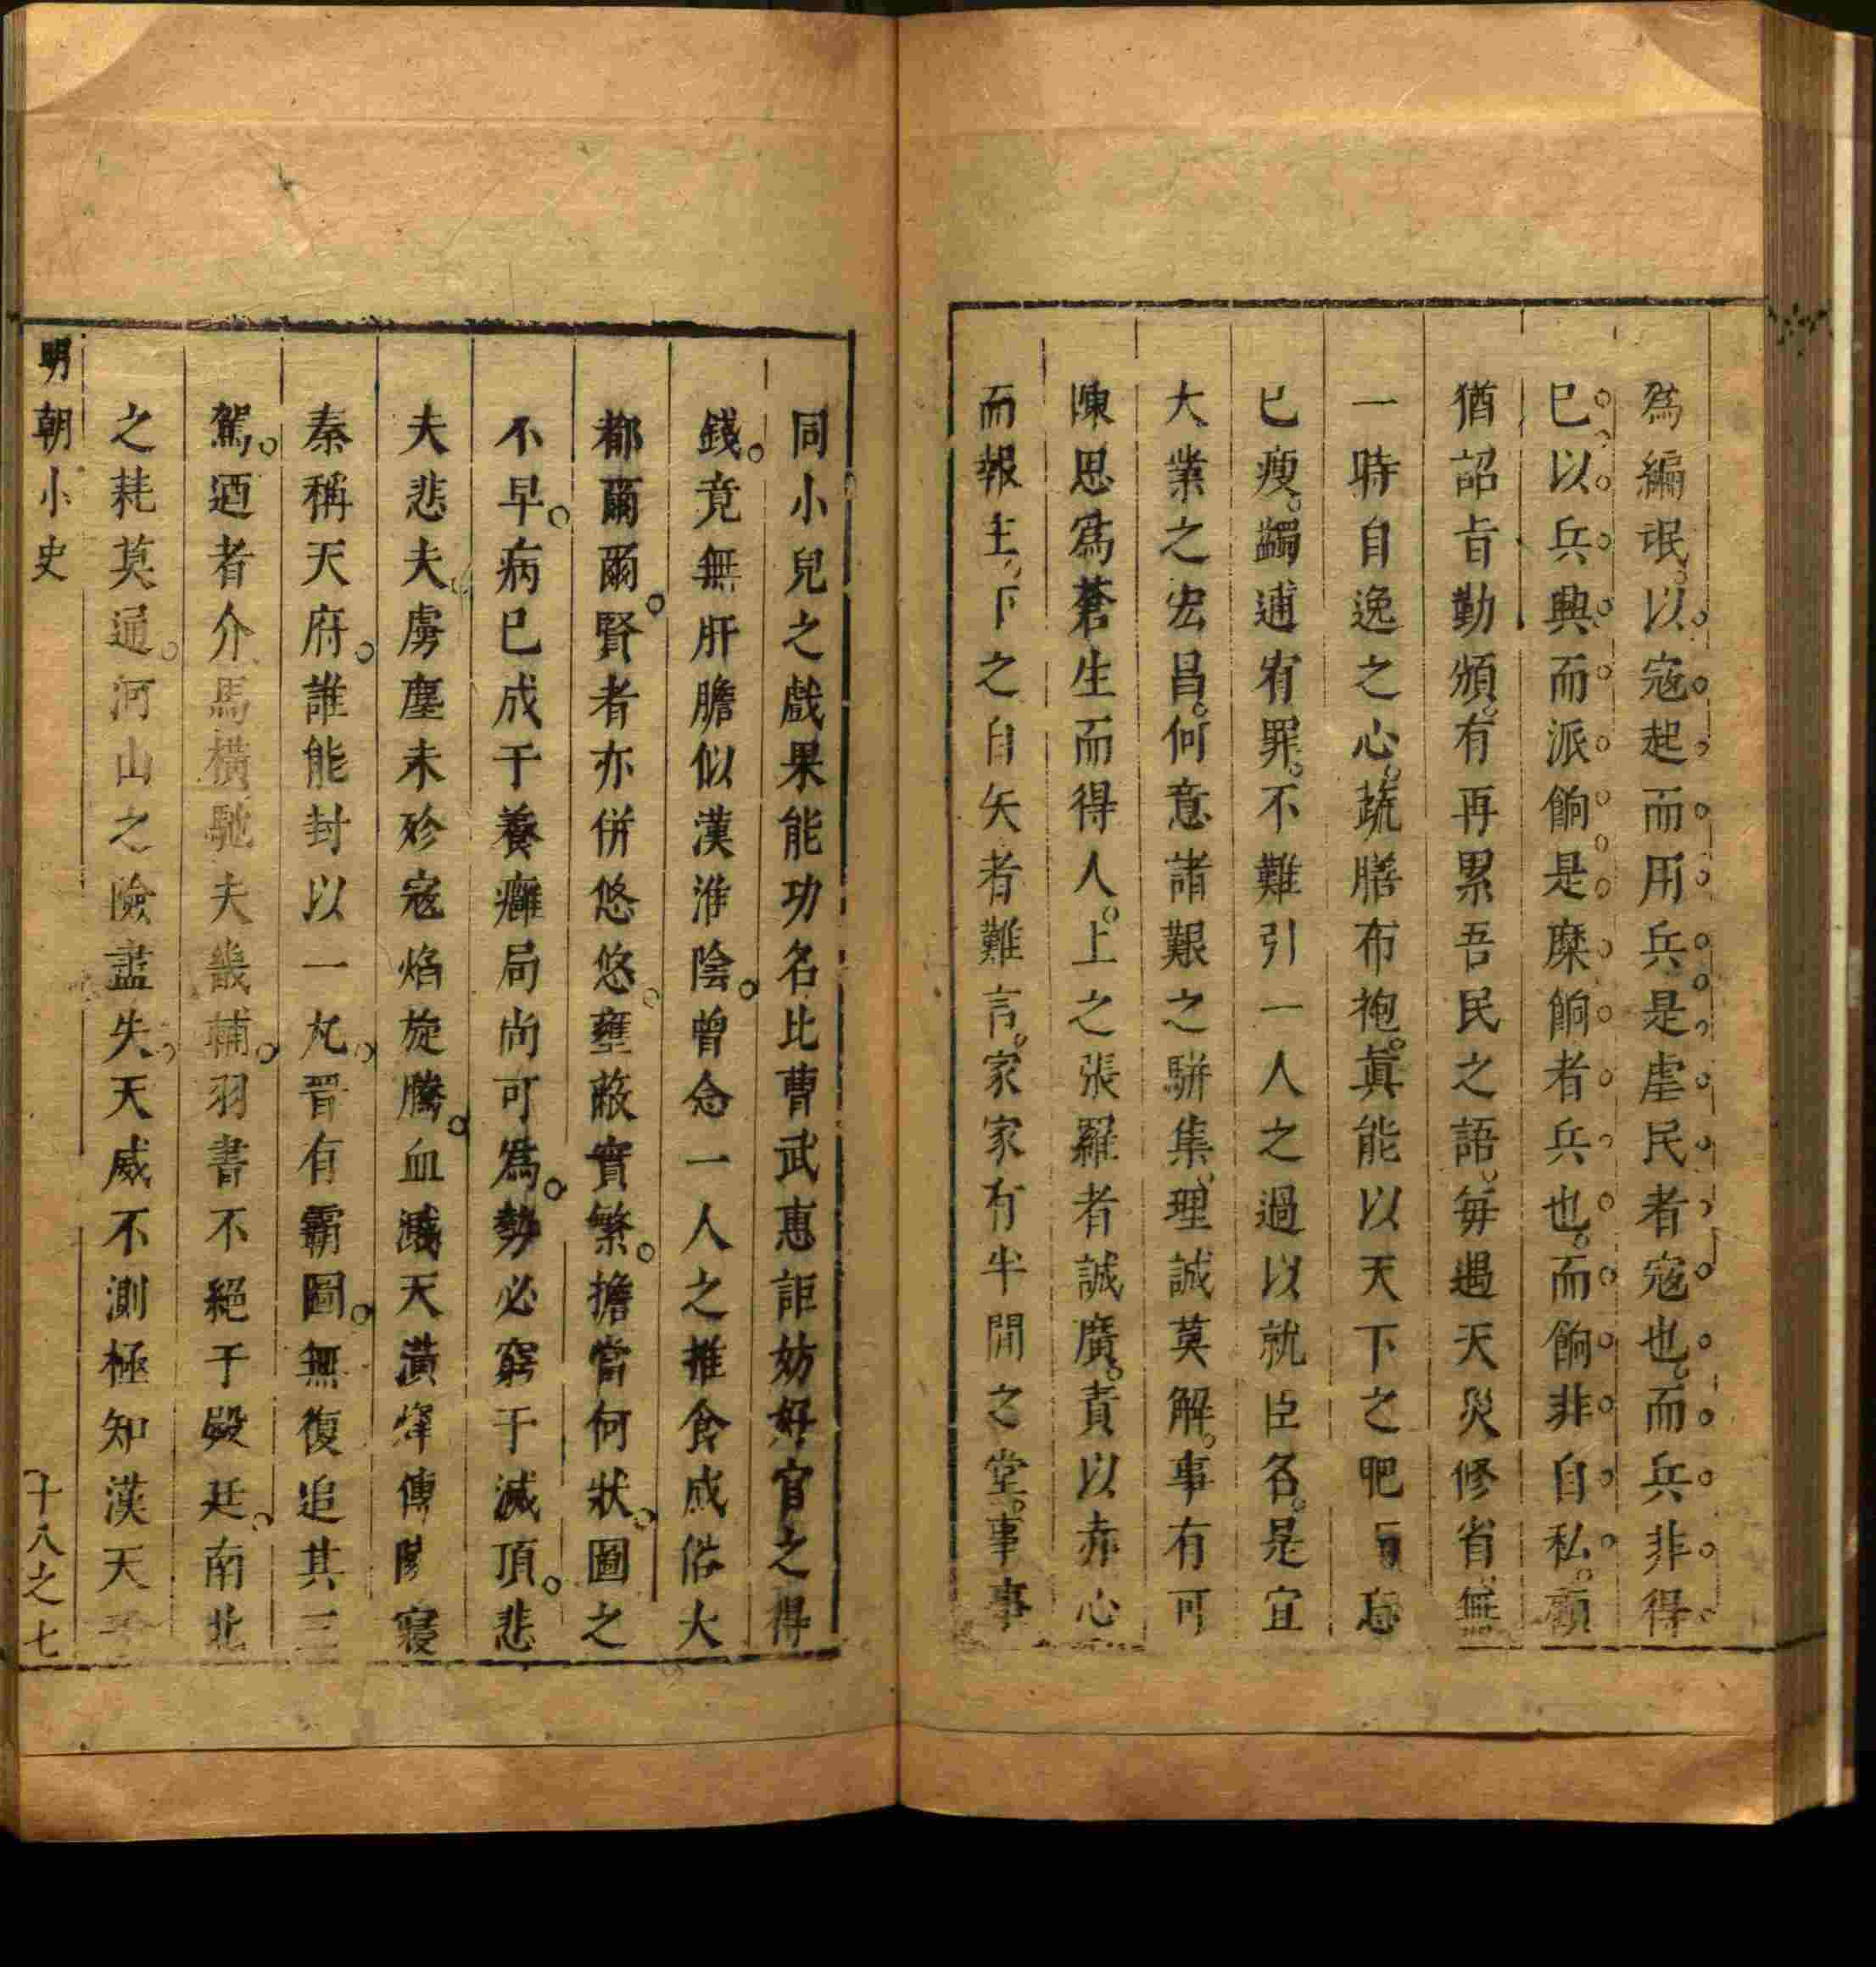 爲編氓以寇起而用兵是虐民者寇也而兵非得
已以兵興而派餉是糜餉者兵也而餉非自私顧
猶詔旨勤頒有再累吾民之語每遇天災修省無
一時自逸之心蔬膳布袍眞能以天下之肥而忘
己瘦蠲逋宥罪不難引一人之過以就臣名是宜
大業之宏昌何意諸艱之駢集理誠莫解事有可
陳思爲蒼生而得人上之張羅者誠廣責以赤心
而報主下之自矢者難言家家有半閒之堂事事
同小兒之戲果能功名比曹武惠詎妨好官之得
錢竟無肝膽似漢淮陰曾念一人之推食成俗大
都爾爾賢者亦併悠悠壅蔽實繁擔當何狀圖之
不早病已成于養癰局尚可爲勢必窮于滅頂悲
夫悲夫虜塵未殄寇焰旋騰血濺天潢烽傳陵寢
秦稱天府誰能封以一丸晉有霸圖無復追其三
駕廼者介馬橫馳夫畿輔羽書不絕于殿廷南北
之耗莫通河山之險盡失天威不測極知漢天子
明朝小史
十八之七